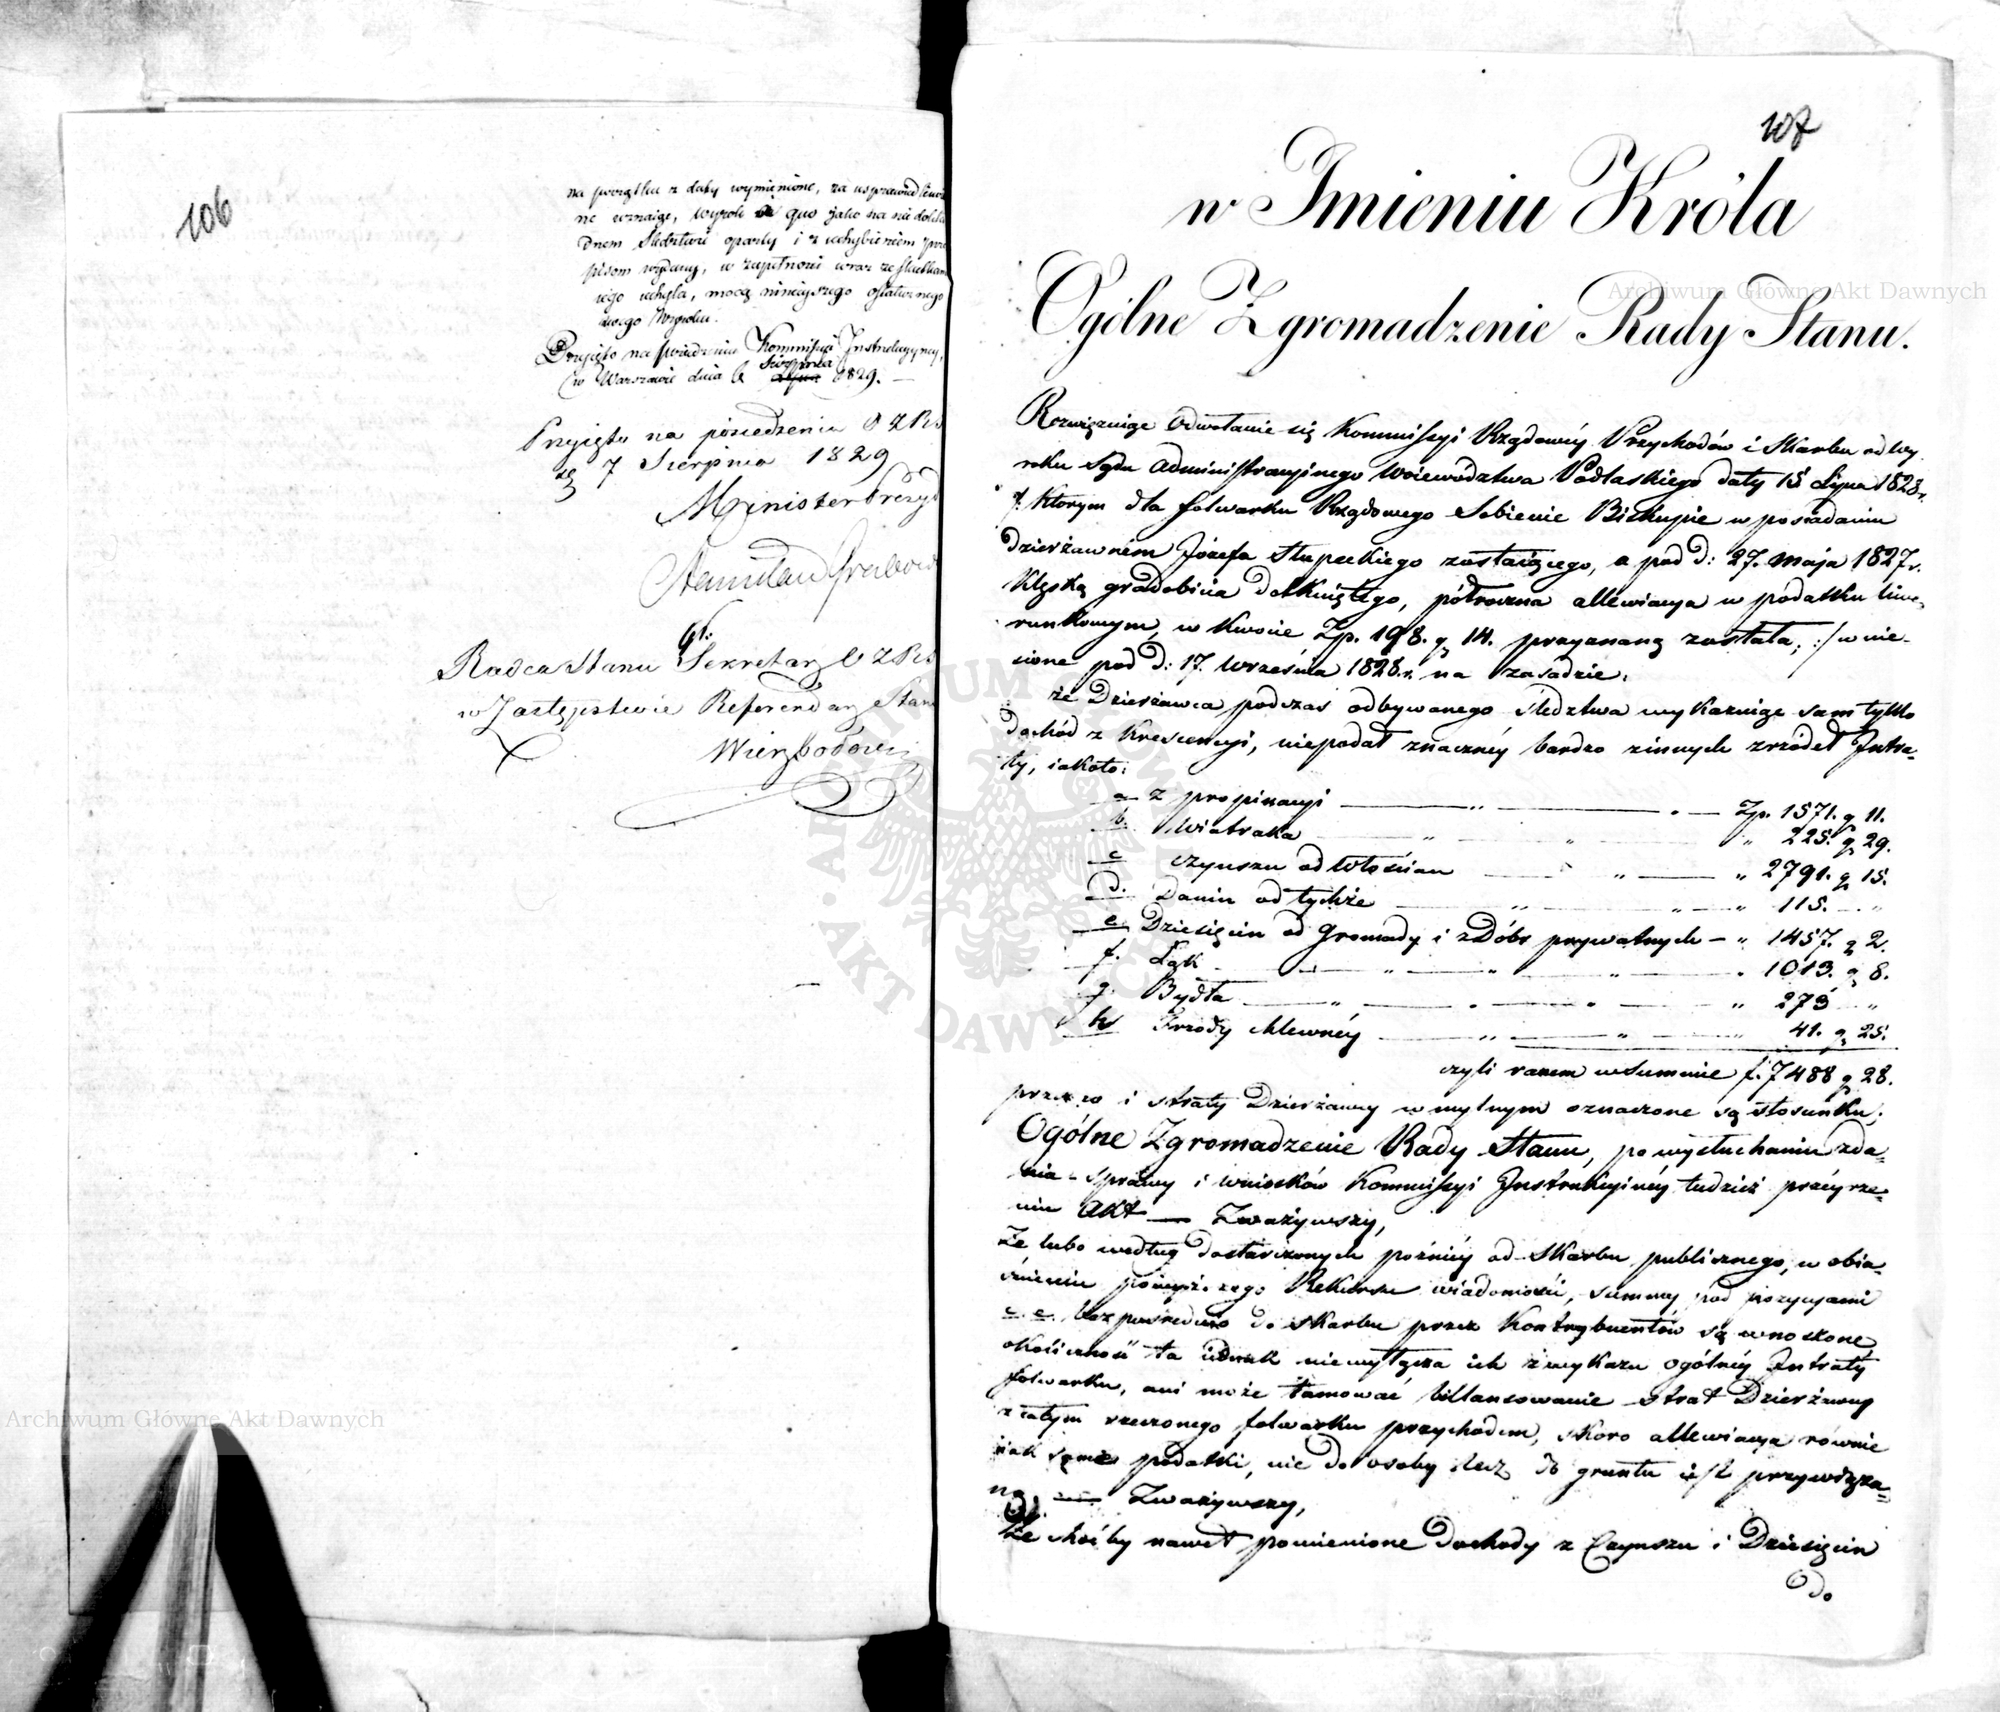 106
na początku z daty wymienione, za usprawiedliwio
ne uznaige, wyrok a quo jako na nie dokła
dnem śledztwie oparty i z uchybieniem prze
pisom wydany, w zupełności wraz ze skutkami
iego uchyla, mocą ninieyszego ostatecznego
swego Wyroku.
Przyięto na posiedzeniu Kommissyi Instrukcyyney,
w Warszawie dnia 6 Sierpnia 1829.
Przyięto na posiedzeniu O Z R S
7 Sierpnia 1829
Minister Prezyd
Stanisław Grabow
Radca Stanu Sekretarz O Z R S
w Zastępstwie Referendarz Stanu
Wierzbołowicz
107
w Imieniu Króla
Ogólne Zgromadzenie Rady Stanu.
Rozwięzuige Odwołanie się Kommissyi Rządowéy Przychodów i Skarbu od Wy
roku Sądu Administracyinego Woiewództwa Podlaskiego daty 15 Lipca 1828 r.
/: Którym dla folwarku Rządowego Sobienie Biskupie w posiadaniu
dzierżawném Józefa Słupeckiego zostaiącego, a pod d: 27. Maja 1827 r.
klęską gradobicia dotkniętego, półroczna allewiacya w podatku liwe-
runkowym, w kwocie Zp. 198. g 14. przyznaną została, :/ wnie-
sione pod d: 17. Września 1828 r. na zasadzie.
że Dzierżawca podczas odbywanego śledztwa wykazuige sam tylko
dochód z Krescencyi, niepodał znacznéy bardzo z innych zrzódeł Intra-
ty, iakoto:
a z propinacyi " Zp. 1571. g 11.
b. Wiatraka " " " 225. g 29.
c czynszu od Włościan " " 2791. g 15.
d. Danin od tychże " " " 115. "
e. Dziesięcin od Gromady i z Dóbr prywatnych " 1457. g 2.
f. Łąk " " " " 1013. g 8.
g. Bydła " " " " 273 "
h Trzody chlewnéy " " " 41. g 25.
czyli razem w Summie f. 7488 g 28.
przezco i straty Dzierżawcy w mylnym oznaczone są stosunku.
Ogólne Zgromadzenie Rady Stanu, po wysłuchaniu zda-
nia sprawy i wniosków Kommissyi Instrukcyinéy tudzież przeyrze-
niu Akt — Zważywszy,
Że lubo według dostarczonych poźniéy od Skarbu publicznego, w obia-
śnieniu powyższego Rekursu wiadomości, summy pod pozycyami
c. e. bezpośrednio do Skarbu przez Kontrybuentów są wnoszone,
okoliczność ta iednak niewyłącza ich z wykazu ogólnéy Intraty
folwarku, ani może tamować billansowanie strat Dzierżawcy
z całym rzeczonego folwarku przychodem, skoro allewiacya równie
iak same podatki, nie do osoby lecz do gruntu iest przywiąza-
ną — Zważywszy,
Że choćby nawet pomienione dochody z Czynszu i Dziesięcin
do
Archiwum Główne Akt Dawnych
Archiwum Główne Akt Dawnych
ARCHIWUM GŁÓWNE AKT DAWNYCH